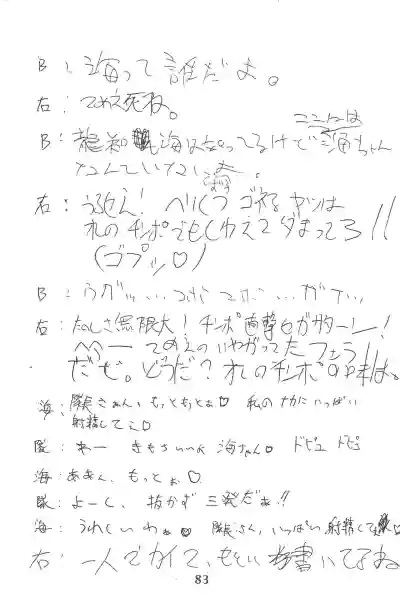 B：海って誰だよ。
右：てめえ死ね。
B：海はなってるけど ここには海ちゃん
なんていないよ。
右：うるせえ！ ゴネるヤツは
オレのチンポでもくわえてダまってろ!!
(ゴプッ♡)
B：ウガッ…
右：たのしさ無限大！チンポ直撃セガサターン！
てめえのいやがってたフェラ!!
だぜ。どうだ？オレのチンポのお味は。
海：隊長さぁん、もっともっとぉ♡ 私のナカにいっぱい
射精してェ♡
隊：あー きもちいいよ海ちゃん♡ ドピュ ドピュ
海：ああん、もっとぉ♡
隊：よーし、抜かず三発だぁ!!
海：うれしいわぁ。隊長さん、いっぱい射精して♡
右：一人でカイて、書いてるね
83